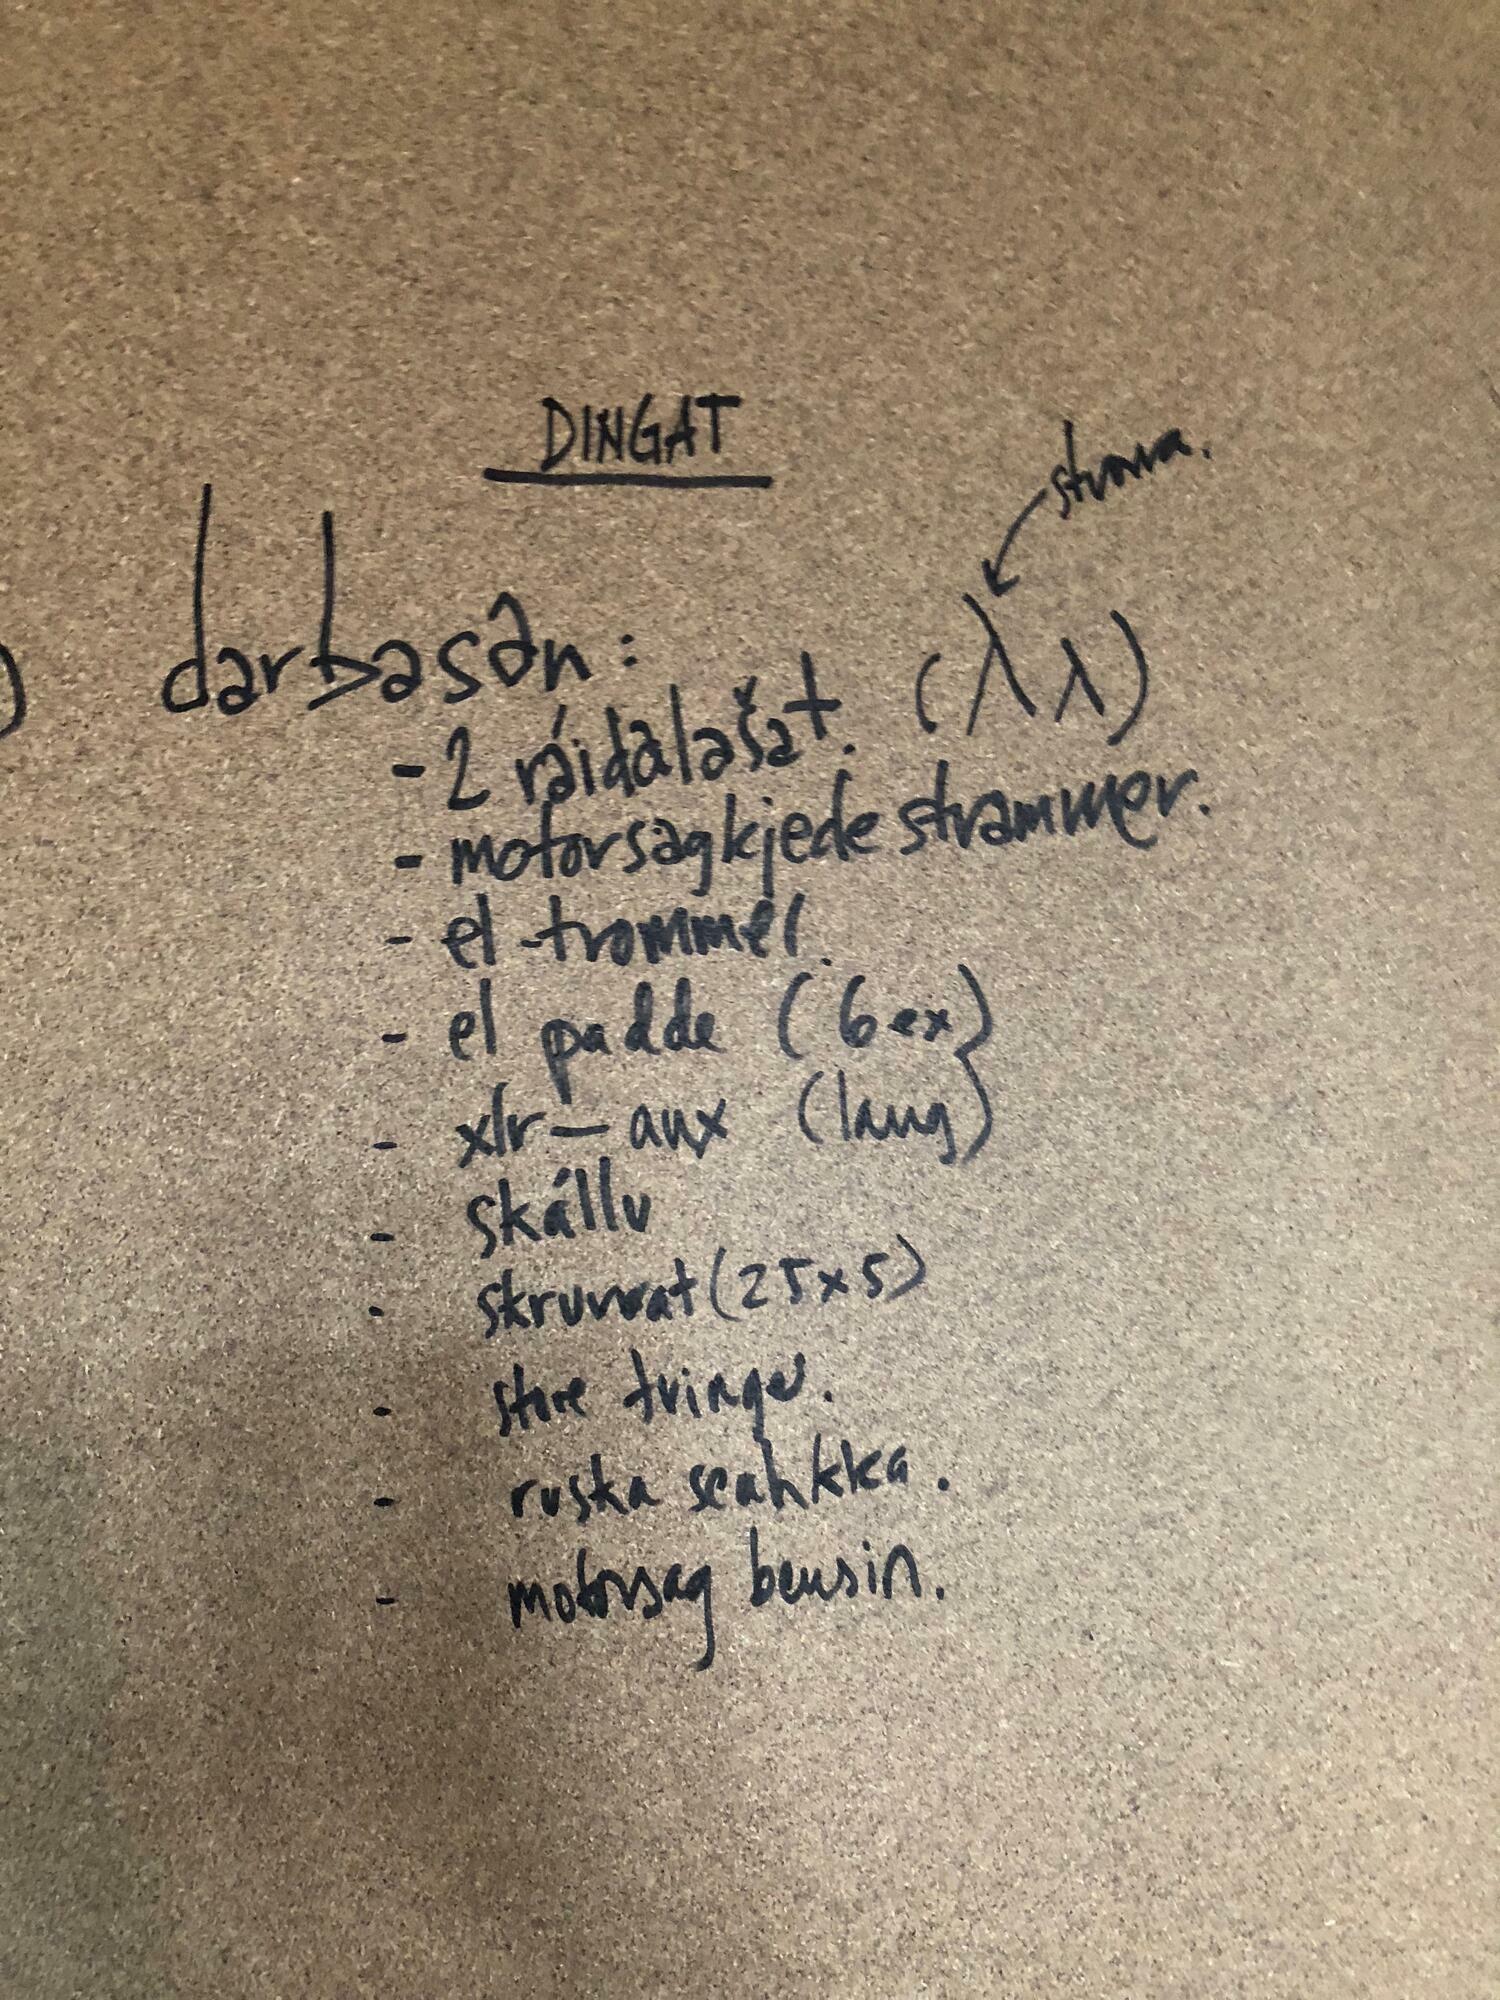 DINGAT
stuora.
darbasan:
- 2 ráidalašat. (λ λ)
- motorsagkjedestrammer.
- el-trommel.
- el padde (6ex)
- xlr-aux (lang)
- skállu
- skruvvat (25x5)
- store tvinger.
- ruska seahkka.
- motorsag bensin.